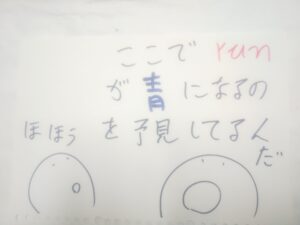 ここで run
が 青 になるの
ほほう を予見してるん
だ